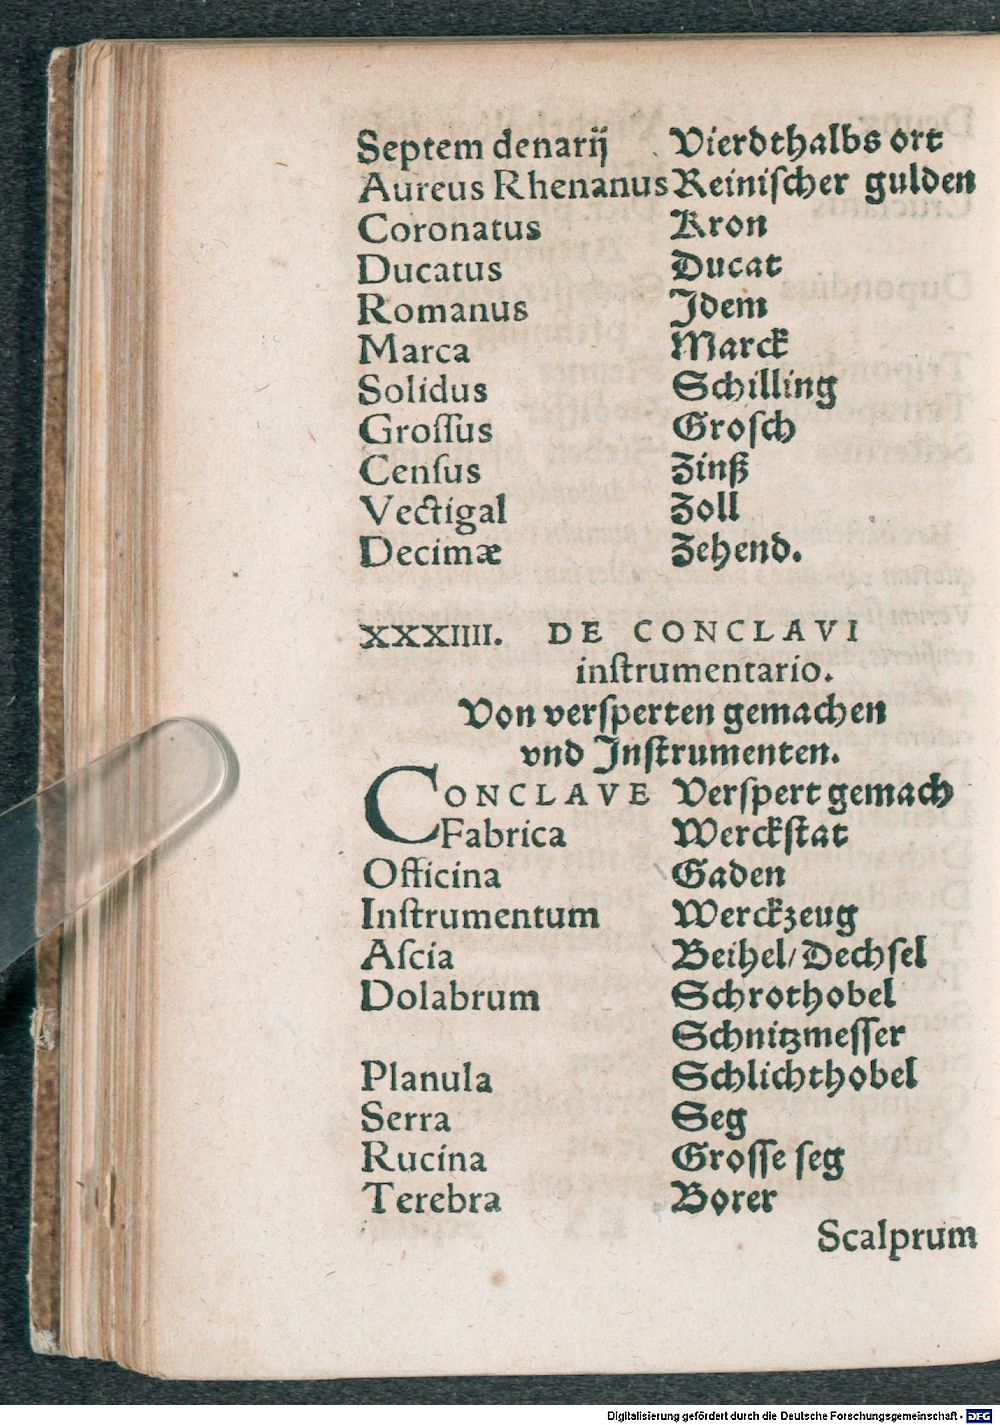 Septem denarij Vierdthalbs ort
Aureus Rhenanus Reiniſcher gulden
Coronatus Kron
Ducatus Ducat
Romanus Jdem
Marca Marck
Solidus Schilling
Groſſus Groſch
Cenſus Zinß
Vectigal Zoll
Decimæ Zehend.
XXXIIII. DE CONCLAVI
inſtrumentario.
Von verſperten gemachen
vnd Jnſtrumenten.
CONCLAVE Verſpert gemach
Fabrica Werckſtat
Officina Gaden
Inſtrumentum Werckzeug
Aſcia Beihel/Dechſel
Dolabrum Schrothobel
Schnitzmeſſer
Planula Schlichthobel
Serra Seg
Rucina Groſſe ſeg
Terebra Borer
Scalprum
Digitalisierung gefördert durch die Deutsche Forschungsgemeinschaft - DFG